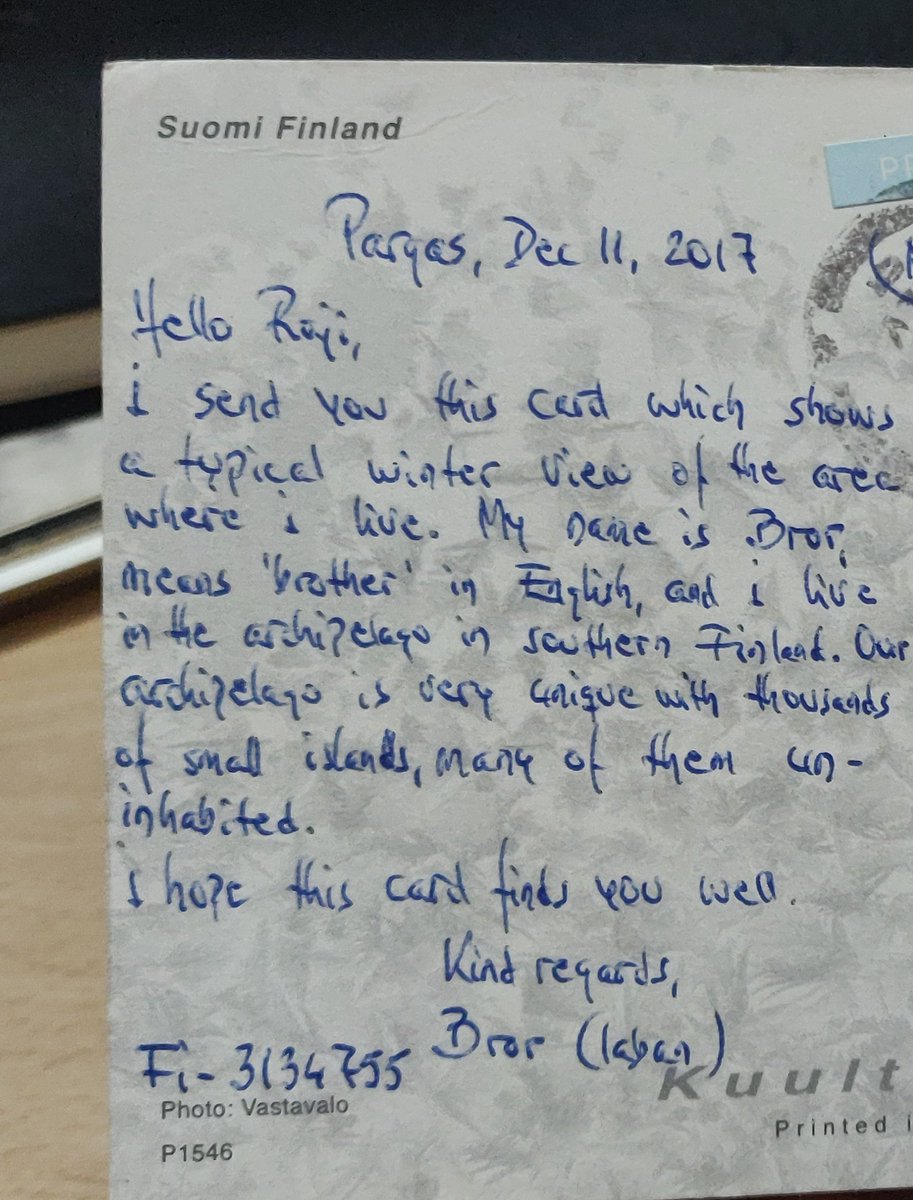 Suomi Finland
PR
Pargas, Dec 11, 2017
Hello Roji,
i send you this card which shows
a typical winter view of the area
where i live. My name is Bror,
means 'brother' in English, and i live
in the archipelago in southern Finland. Our
archipelago is very unique with thousands
of small islands, many of them un-
inhabited.
i hope this card finds you well.
Kind regards,
Bror (laban)
Fi-3134755
Kuult
Photo: Vastavalo
Printed i
P1546